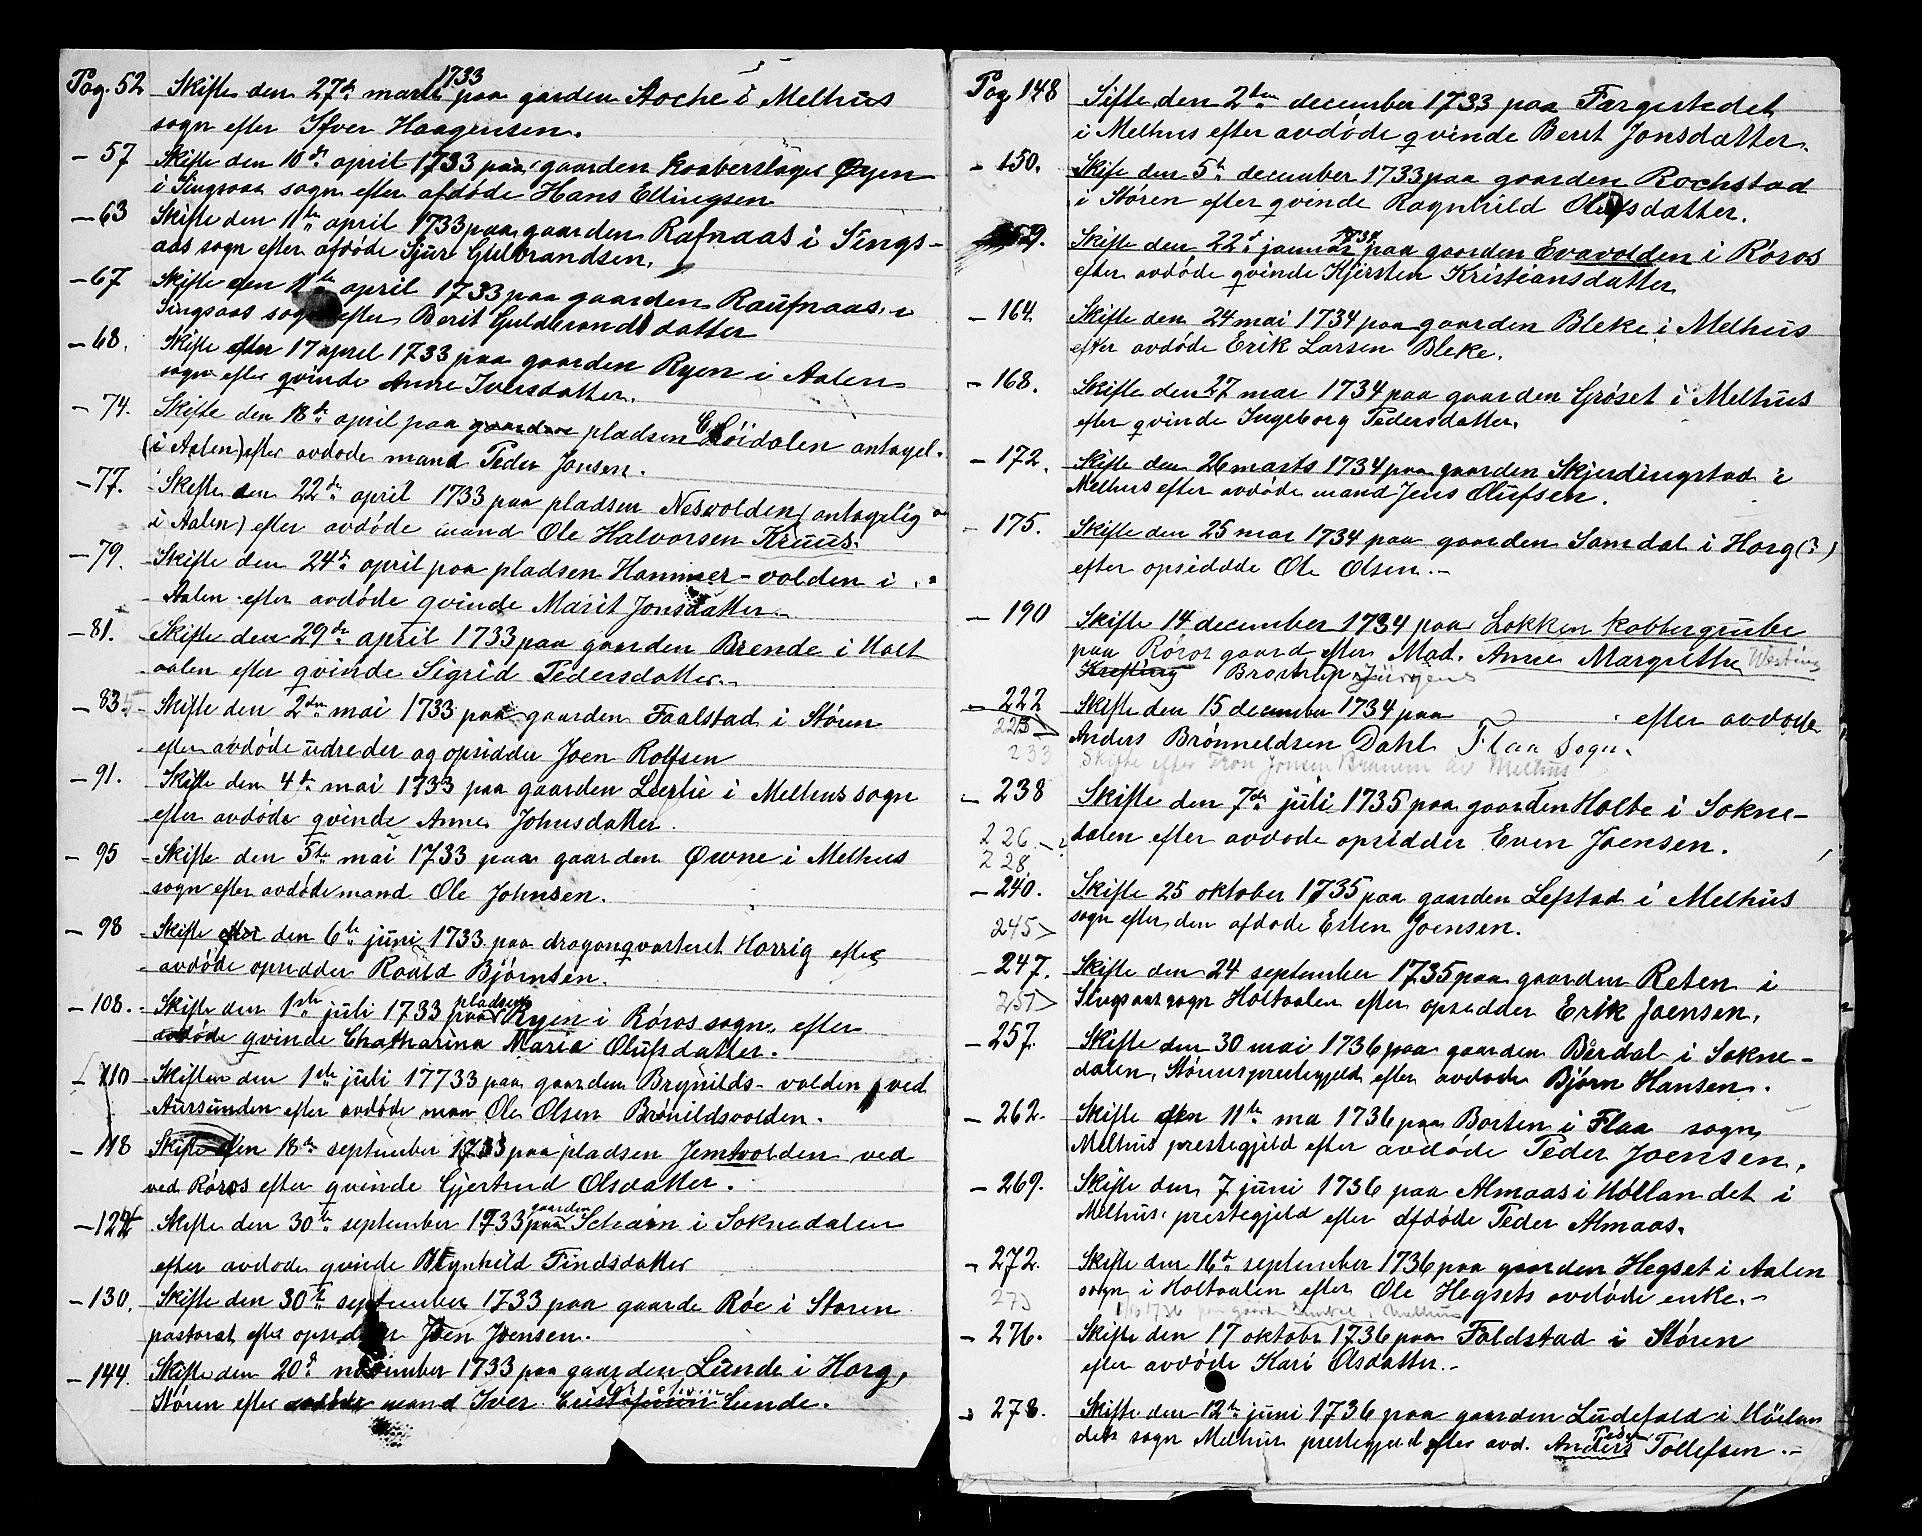 Pag. 52 Skifte den 27de marts 1733 paa gaarden Aoche i Melhus
sogn efter Ifver Haagensen.
- 57 Skifte den 10de april 1733 paa gaarden kaaberslager Øyen
i Singsaas sogn efter afdøde Hans Ellingsen
- 63 Skifte den 11te april 1733 paa gaarden Rafnaas i Sings-
aas sogn efter afdøde Sjur Gulbrandsen.
- 67 Skifte den 11te april 1733 paa gaarden Raufnaas i
Singsaas sogn efter Berit Guldbrandsdatter
- 68. Skifte efter 17 april 1733 paa gaarden Ryen i Aalen
sogn efter qvinde Anne Iversdatter.
- 74. Skifte den 18de april paa gaarden pladsen Løidalen antagel.
(i Aalen) efter avdøde mand Peder Jonsen.
- 77. Skifte den 22de april 1733 paa pladsen Nesvolden (antagelig
i Aalen) efter avdøde mand Ole Halvorsen Kruus.
- 79. Skifte den 24de april paa pladsen Hammer-volden i
Aalen efter avdøde qvinde Marit Jonsdatter.-
- 81. Skifte den 29de april 1733 paa gaarden Brende i Holt
aalen efter qvinde Sigrid Pedersdatter.-
- 83. Skifte den 2den mai 1733 paa gaarden Faalstad i Støren
efter avdøde udreder og opsidder Joen Rolfsen
- 91. Skifte den 4de mai 1733 paa gaarden Leerlie i Melhus sogn
efter avdøde qvinde Anne Johnsdatter.
- 95 Skifte den 5te mai 1733 paa gaarden Øwne i Melhus
sogn efter avdøde mand Ole Johnsen.
- 98 Skifte efter den 6te juni 1733 paa dragonqvarteret Horrig efter
avdøde opsidder Roald Bjørnsen.
- 108. Skifte den 1ste juli 1733 paa pladsen Ryen i Røros sogn efter
avdøde qvinde Chatharina Maria Olufsdatter.
- 110 Skiften den 1ste juli 17733 paa gaarden Brynilds-volden ved
Aursunden efter avdøde man Ole Olsen Brönildsvolden.
- 118 Skifte den 18de september 1733 paa pladsen Jemtvolden ved
ved Røros efter qvinde Gjertrud Olsdatter.
- 122 Skifte den 30te september 1733 paa gaarden Scheain i Soknedalen
efter avdøde qvinde Brynhild Findsdatter
- 130. Skifte den 30te september 1733 paa gaarde Röe i Støren
pastorat efter opsidder Joen Joensen.
- 144. Skifte den 20de november 1733 paa gaarden Lunde i Horg,
Støren efter avdøde mand Iver Lunde.
Pag 148 Sifte den 2den december 1733 paa Færgestedet
i Melhus efter avdøde qvinde Berit Jonsdatter.
- 150. Skife den 5te december 1733 paa gaarden Rochstad
i Støren efter qvinde Ragnhild Olufsdatter.
159. Skifte den 22de januar 1734 paa gaarden Evavolden i Røros
efter avdøde qvinde Kjersten Kristiansdatter
- 164. Skifte den 24 mai 1734 paa gaarden Bleke i Melhus
efter avdøde Erik Larsen Bleke.
- 168. Skifte den 27 mar 1734 paa gaarden Grøset i Melhus
efter qvinde Ingeborg Pedersdatter.
- 172. Skifte den 26 marts 1734 paa gaarden Skjerdingstad i
Melhus efter avdøde mand Jens Olufsen.
- 175. Skifte den 25 mar 1734 paa gaarden Samdal i Horg (?)
efter opsiddde Ole Olsen.-
- 190 Skifte 14 december 1734 paa Løkken kobbergrube
paa Røros gaard efter Mad. Anne Margrethe
Krefting Brostrup Jürgens
- 222 Skifte den 15 december 1734 paa . efter avdøde
223 Anders Brønneldsen Dahl Flaa Sogn.
233 Skifte efter Tron Jonsen Branem av Melhus
- 238 Skifte den 7de juli 1735 paa gaarden Holte i Sokne-
226 - ? dalen efter avdøde opsidder Even Joensen.
228
- 240. Skifte 25 oktober 1735 paa gaarden Lefstad i Melhus
245 sogn efter den afdøde Esten Joensen.
- 247. Skifte den 24 september 1735 paa gaarden Reten i
251 Singsaas sogn Holtaalen efter opsidder Erik Joensen.
- 257. Skifte den 30 mai 1736 paa gaarden Bårdal i Sokne-
dalen, Størens prestegjeld efter avdøde Bjørn Hansen.
- 262. Skifte den 11te ma 1736 paa Borten i Flaa sogn
Melhus prestegjeld efter avdøde Peder Joensen.
- 269. Skifte den 7 juni 1736 paa Almaas i Høllandet i
Melhus prestegjeld efter afdøde Peder Almaas.
- 272. Skifte den 16de september 1736 paa gaarden Hegset i Aalen
sogn i Holtaalen efter Ole Hegsets avdøde enke.-
273 1736 paa gaarden i Melhus
- 276. Skifte den 17 oktobr 1736 paa Foldstad i Støren
efter avdøde Kari Olsdatter.-
- 278. Skifte den 12te juni 1736 paa gaarden Ludefald i Höilan
dets sogn Melhus prestegjeld efter avd. Anders Peder Tollefsen.-